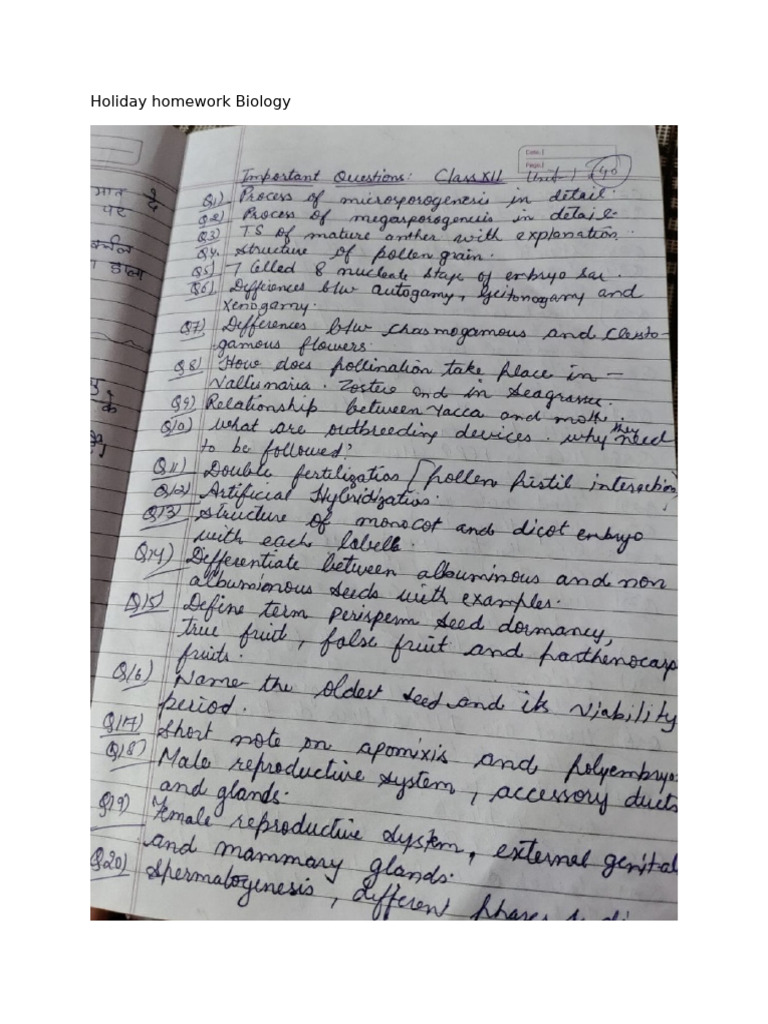 Holiday homework Biology
Date:
Page:
Important Questions: Class XII Unit-1 (40)
Q1) Process of microsporogenesis in detail.
Q2) Process of megasporogenesis in detail.
Q3) TS of mature anther with explanation.
Q4. Structure of pollen grain.
Q5) 7 Celled 8 nucleate stage of embryo sac.
Q6) Differences b/w autogamy, Geitonogamy and
Xenogamy.
Q7) Differences b/w chasmogamous and Cleisto-
gamous flowers.
Q8) How does pollination take place in -
Vallisnaria. Zostra and in Seagrasses.
Q9) Relationship between Yacca and moth.
Q10) What are outbreeding devices. why they need
to be followed?
Q11) Double fertilization / pollen pistil interaction
Q12) Artificial Hybridization.
Q13) Structure of monocot and dicot embryo
with each labels.
Q14) Differentiate between albuminous and non
albuminous seeds with examples.
Q15) Define term perisperm seed dormancy,
true fruit, false fruit and parthenocarp
fruits.
Q16) Name the oldest seed and its viability
period.
Q17) Short note on apomixis and polyembryo
Q18) Male reproductive system, accessory ducts
and glands.
Q19) Female reproductive system, external genital
and mammary glands.
Q20) Spermatogenesis, different phases
मात
पर
डाला
के